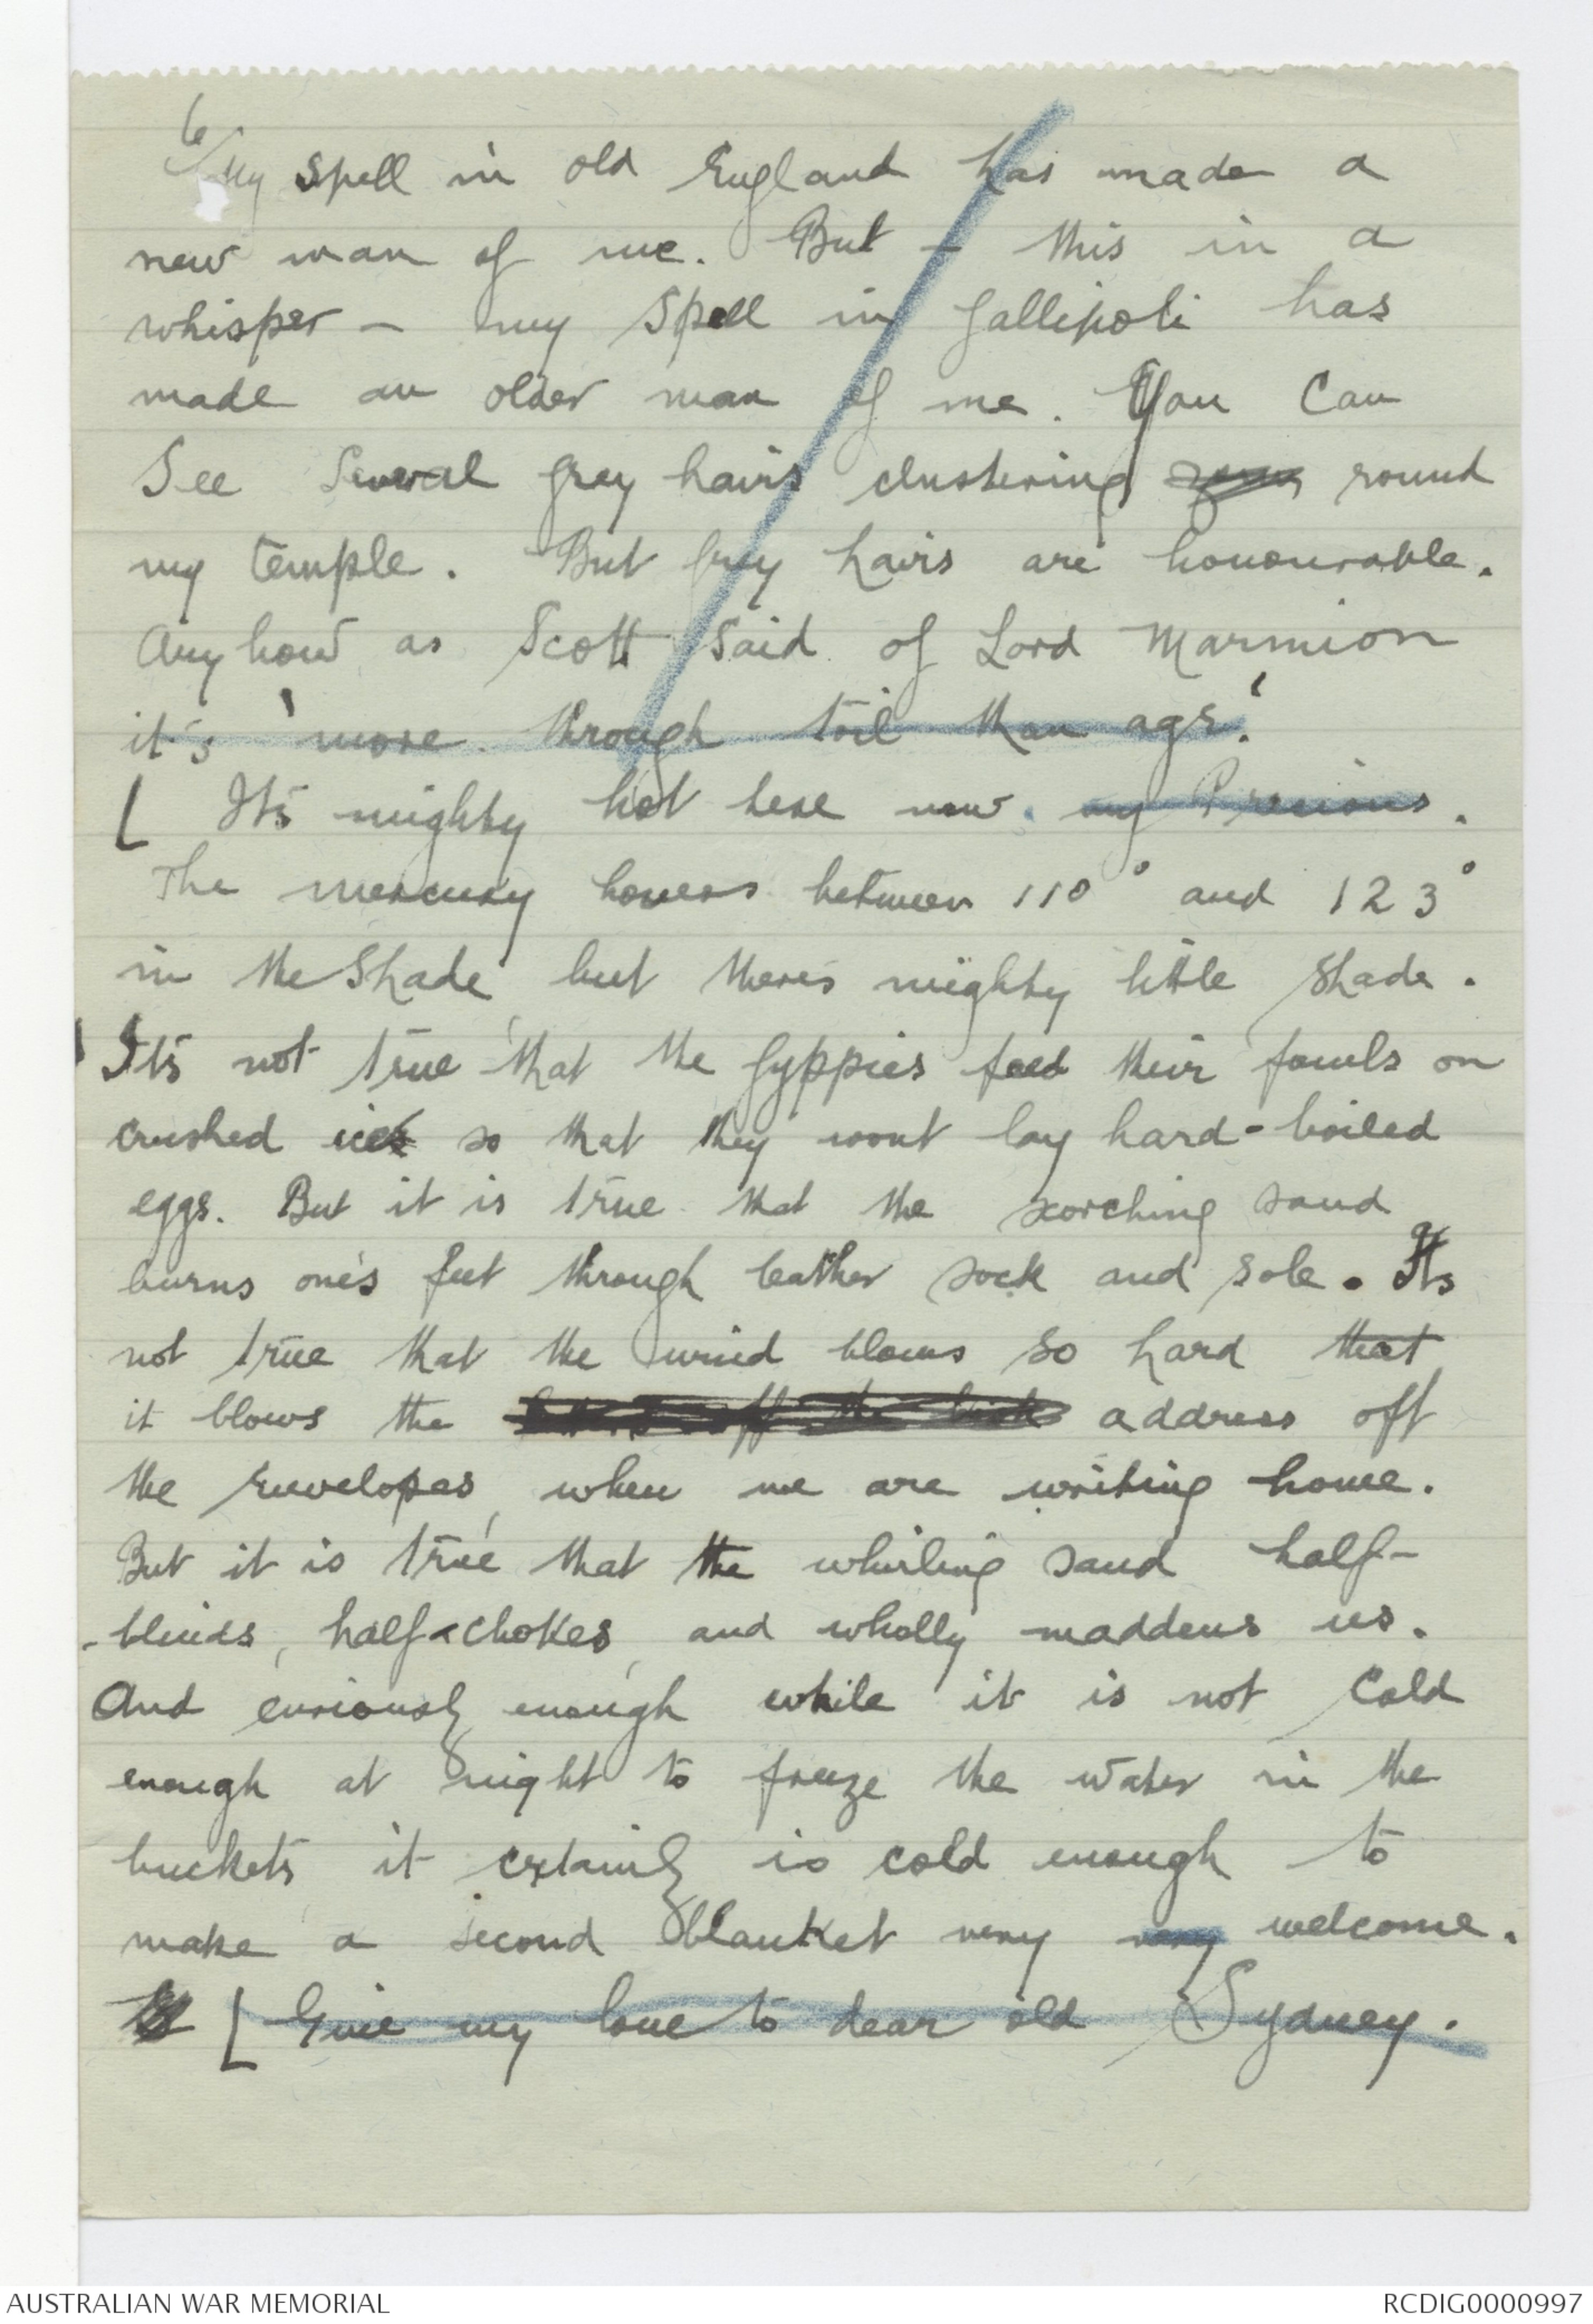 6/
My spell in old England has made a
new man of me. But – this in a
whisper – my spell in Gallipoli has
made an older man of me. You can
See Several grey hairs clustering round
my temple. But grey hairs are honourable.
Anyhow as Scott Said of Lord Marmion
it's 'more through toil than age.'
[ Its mighty hot here now my Precious.
The mercury hovers between 110° and 123°
in the Shade, but there's mighty little shade.
Its not true that the Gyppies feed their fowls on
crushed ice so that they wont lay hard-boiled
eggs. But it is true that the scorching sand
burns one's feet through leather sock and sole. Its
not true that the wind blows so hard that
it blows the address off
the envelopes, when we are writing home.
But it is true that the whirling sand half-
-blinds, half-chokes, and wholly maddens us.
And curiously enough while it is not cold
enough at night to freeze the water in the
buckets it certainly is cold enough to
make a second blanket very very welcome.
[ Give my love to dear old Sydney.
AUSTRALIAN WAR MEMORIAL
RCDIG0000997